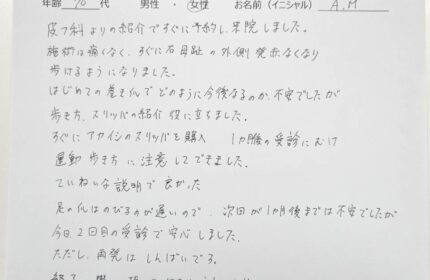 年齢 70 代 男性 ・ 女性 お名前（イニシャル） A.M
皮フ科よりの紹介ですぐに予約し、来院しました。
施術は痛くなく、すぐに右母趾の外側発赤なくなり
歩けるようになりました。
はじめての巻き爪でどのように今後なるのか、不安でしたが
歩き方、スリッパの紹介 役に立ちました。
すぐにアカイシのスリッパを購入 1ヵ月後の受診にむけ
運動 歩き方に注意してできました。
ていねいな説明で良かった
足の爪はのびるのが遅いので、次回が1ヵ月後までは不安でしたが
今日、2回目の受診で安心しました。
ただし、再発はしんぱいでる。